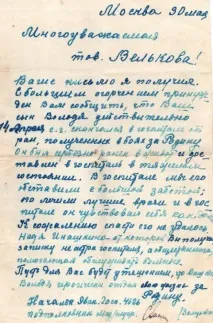 Москва 30 мая
Многоуважаемая
тов. Велькова!
Ваше письмо я получил.
С большим огорчением принуж-
ден Вам сообщить, что Ваш
сын Володя действительно
14 апреля с.г. скончался в госпитале от
ран, полученных в боях за Родину
Он был и дос-
тавлен в госпиталь в тяжелом
состоянии. В госпитале мы его
обставили с большой заботой;
его лечили лучшие врачи и в гос-
питале он чувствовал себя как
К сожалению спасти его не удалось.
Надя от которой Вы получи
записку медсестра госпиталя,
Пусть для Вас будет утешением, что Ваш сын
Володя героически отдал свою жизнь за
Родину.
Начальник Эвак. Госп.
подполковник мед. службы